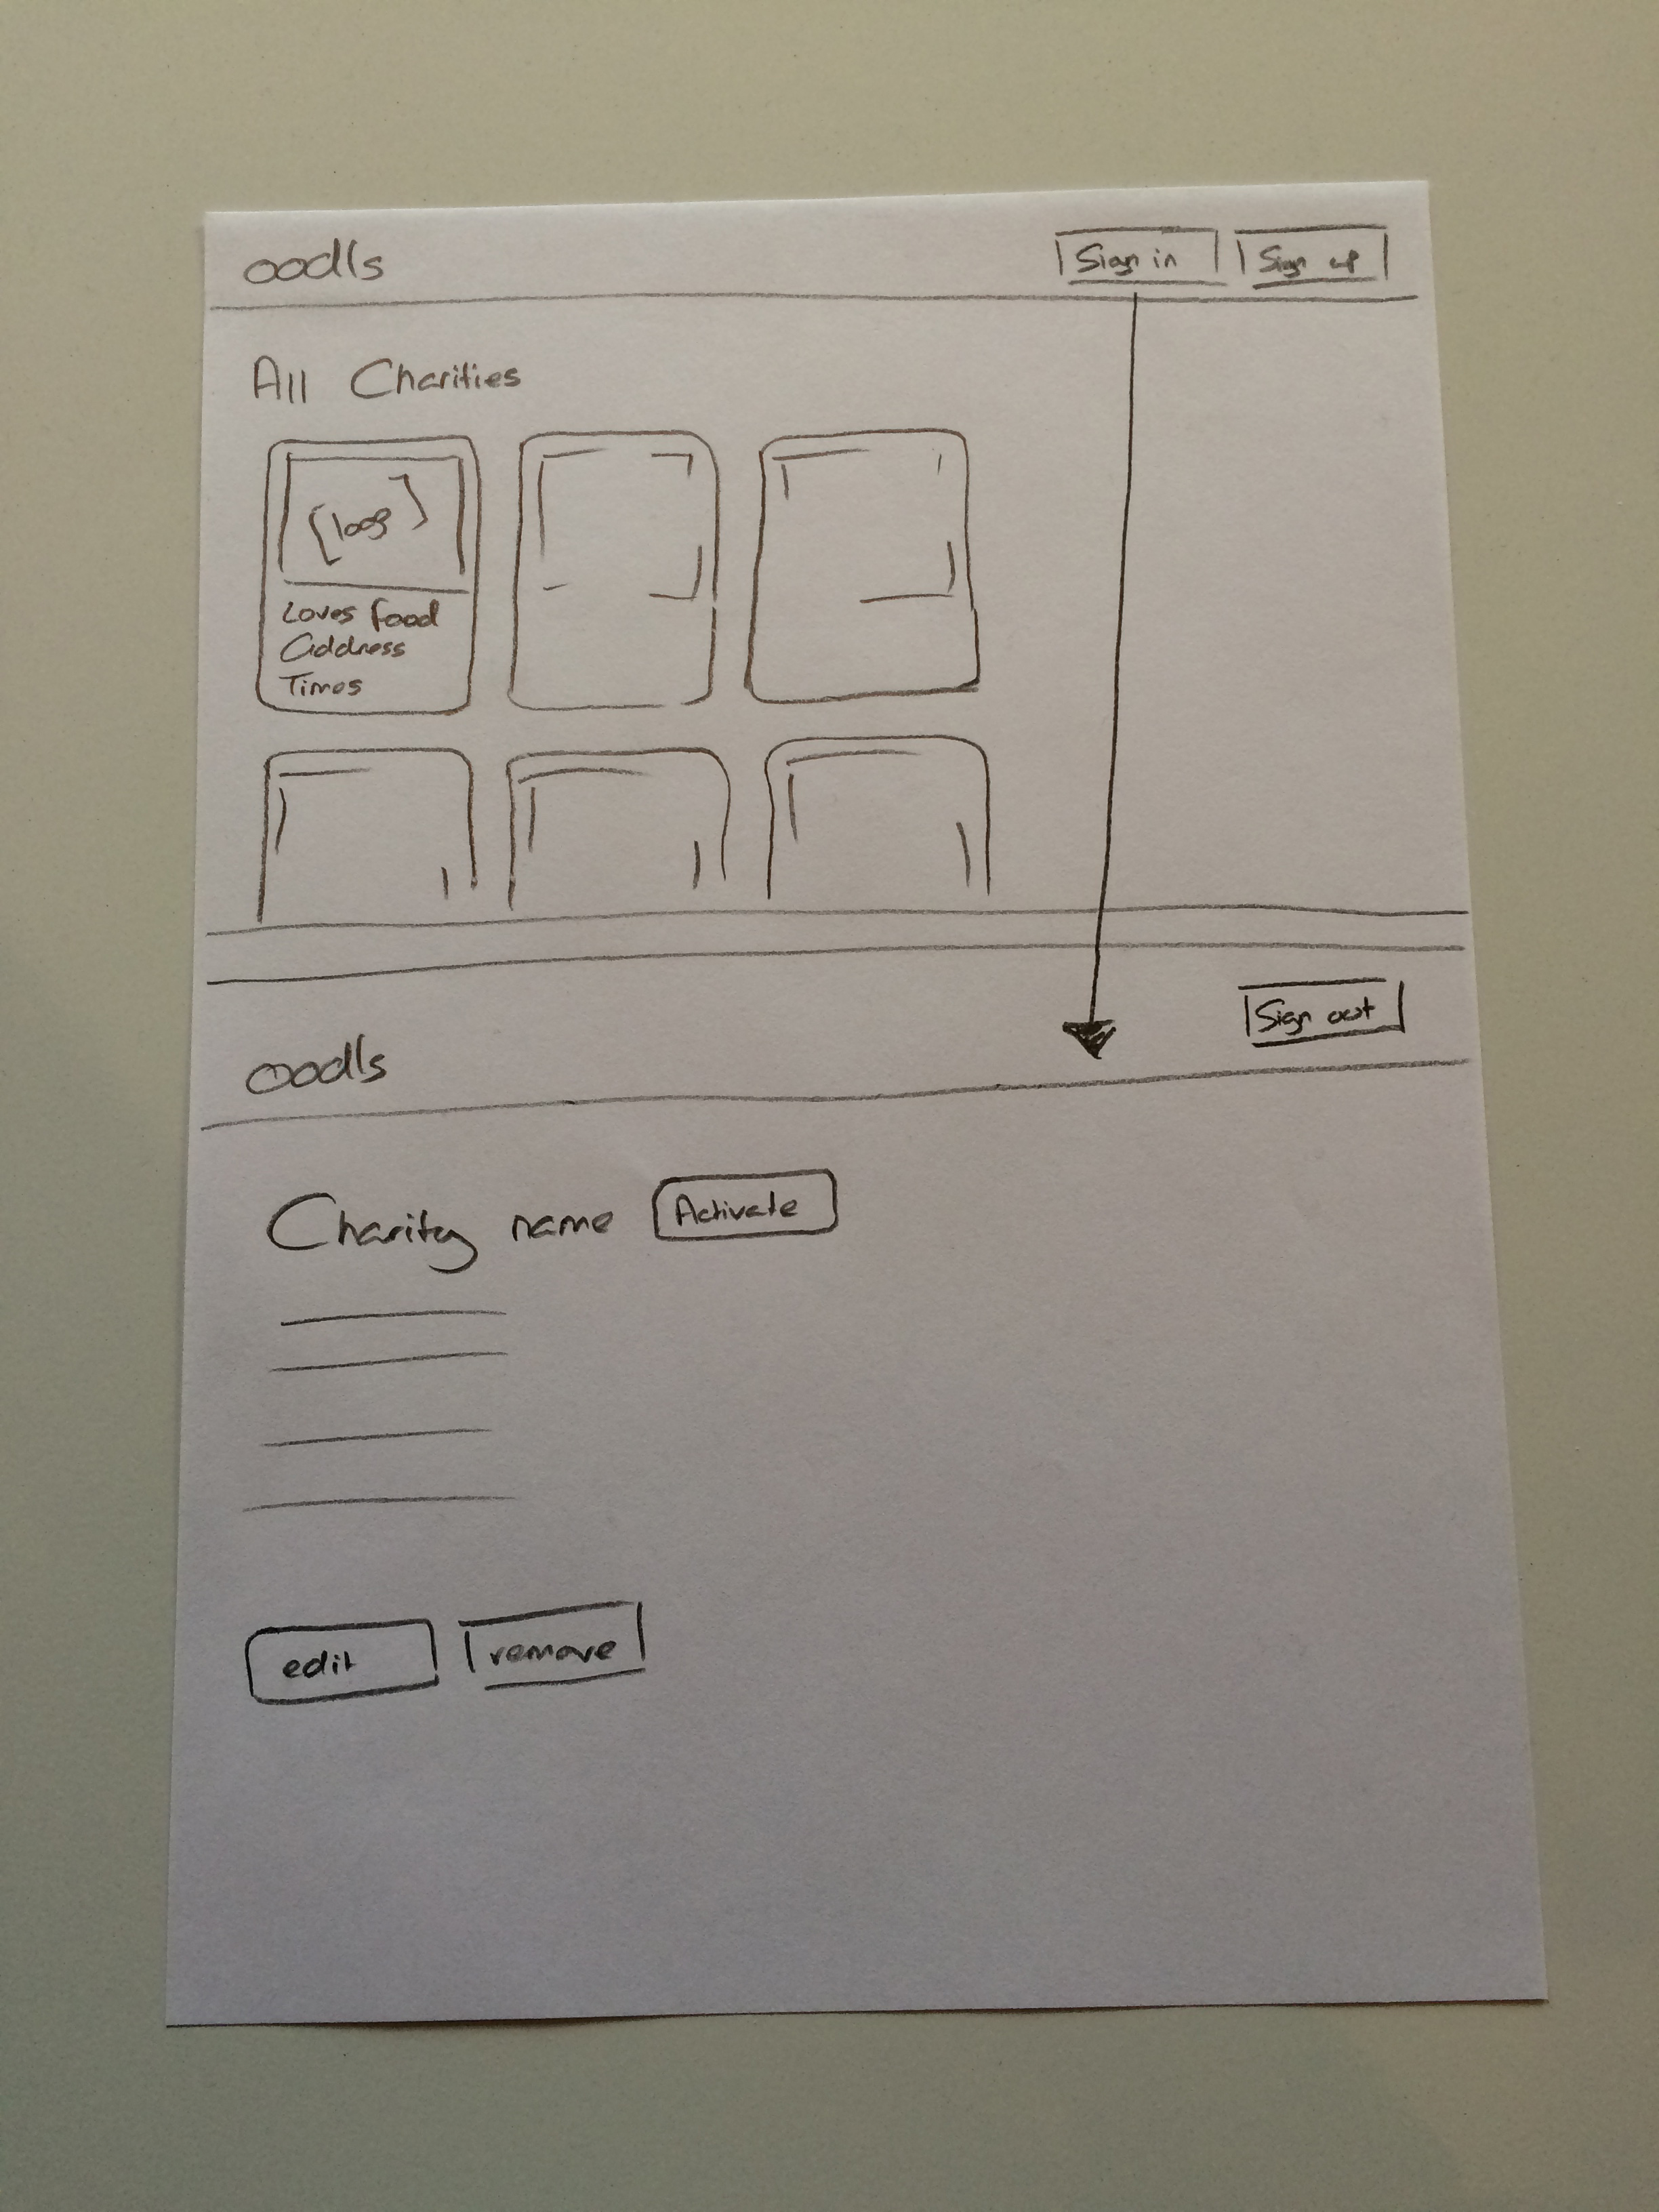 oodls
Sign in
Sign up
All Charities
[logo]
Loves food
Address
Times
oodls
Sign out
Charity name
Activate
edit
remove